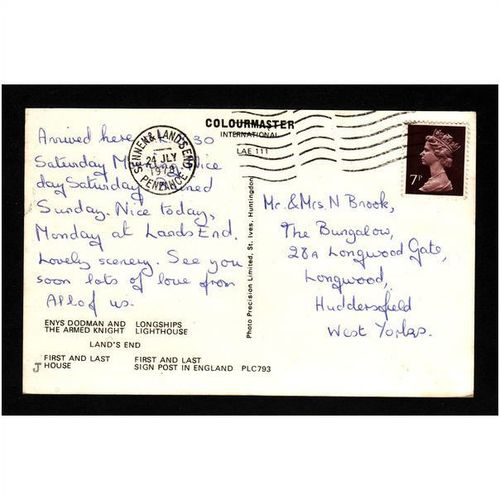 COLOURMASTER
INTERNATIONAL
LAE 111
SENNEN & LAND'S END
24 JLY
PENZANCE
7P
Arrived here 30
Saturday Nice
day Saturday
Sunday. Nice today,
Monday at Lands End.
Lovely scenery. See you
soon lots of love from
All of us.
ENYS DODMAN AND LONGSHIPS
THE ARMED KNIGHT LIGHTHOUSE
LAND'S END
FIRST AND LAST FIRST AND LAST
J HOUSE SIGN POST IN ENGLAND PLC793
Photo Precision Limited, St. Ives, Huntingdon
Mr. & Mrs N Brook,
The Bungalow,
28A Longwood Gate,
Longwood,
Huddersfield
West Yorks.